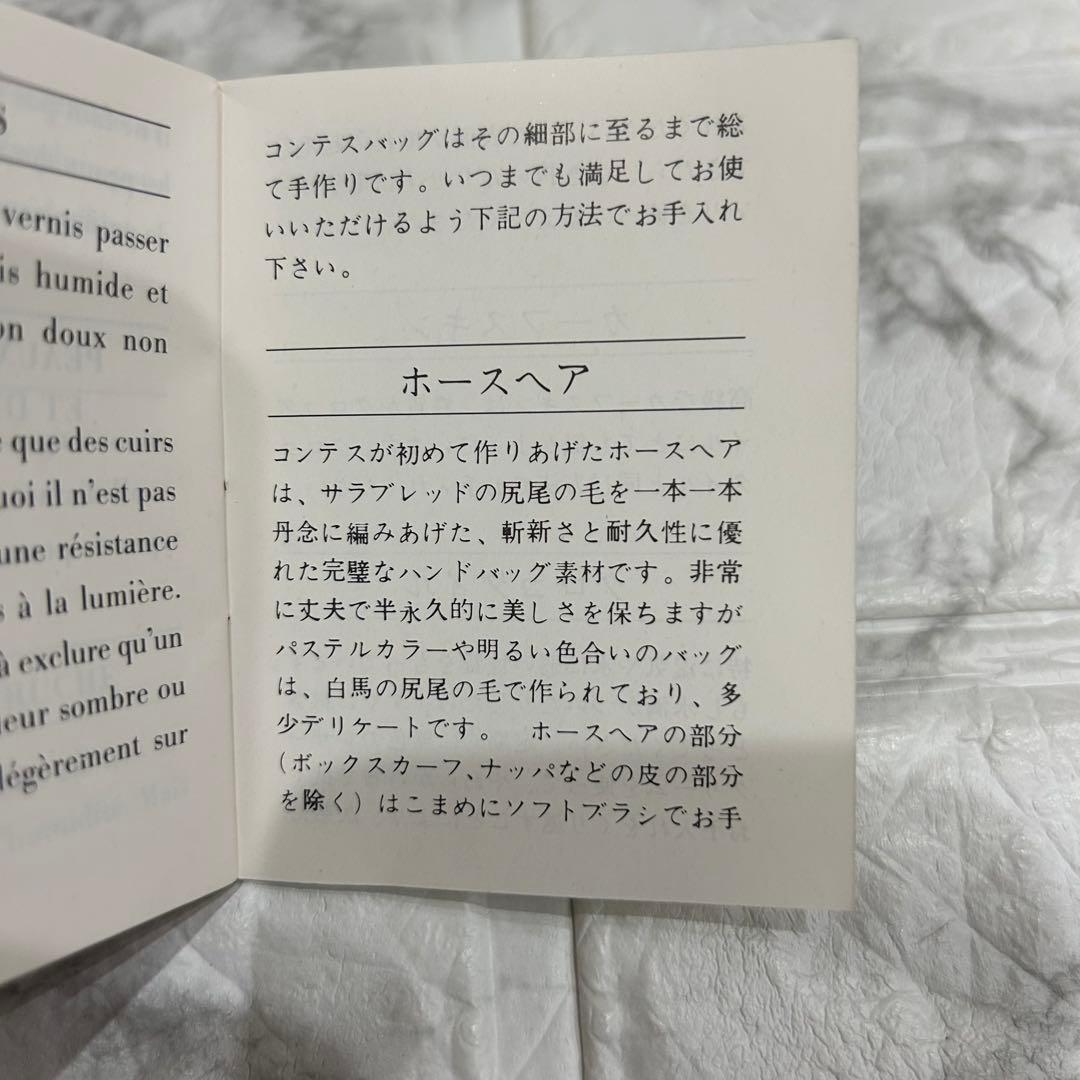 S
vernis passer
is humide et
on doux non
que des cuirs
uoi il n'est pas
une résistance
s à la lumière.
à exclure qu'un
leur sombre ou
légèrement sur
コンテスバッグはその細部に至るまで総
て手作りです。いつまでも満足してお使
いいただけるよう下記の方法でお手入れ
下さい。
ホースヘア
コンテスが初めて作りあげたホースヘア
は、サラブレッドの尻尾の毛を一本一本
丹念に編みあげた、斬新さと耐久性に優
れた完璧なハンドバッグ素材です。非常
に丈夫で半永久的に美しさを保ちますが
パステルカラーや明るい色合いのバッグ
は、白馬の尻尾の毛で作られており、多
少デリケートです。　ホースヘアの部分
(ボックスカーフ、ナッパなどの皮の部分
を除く)はこまめにソフトブラシでお手